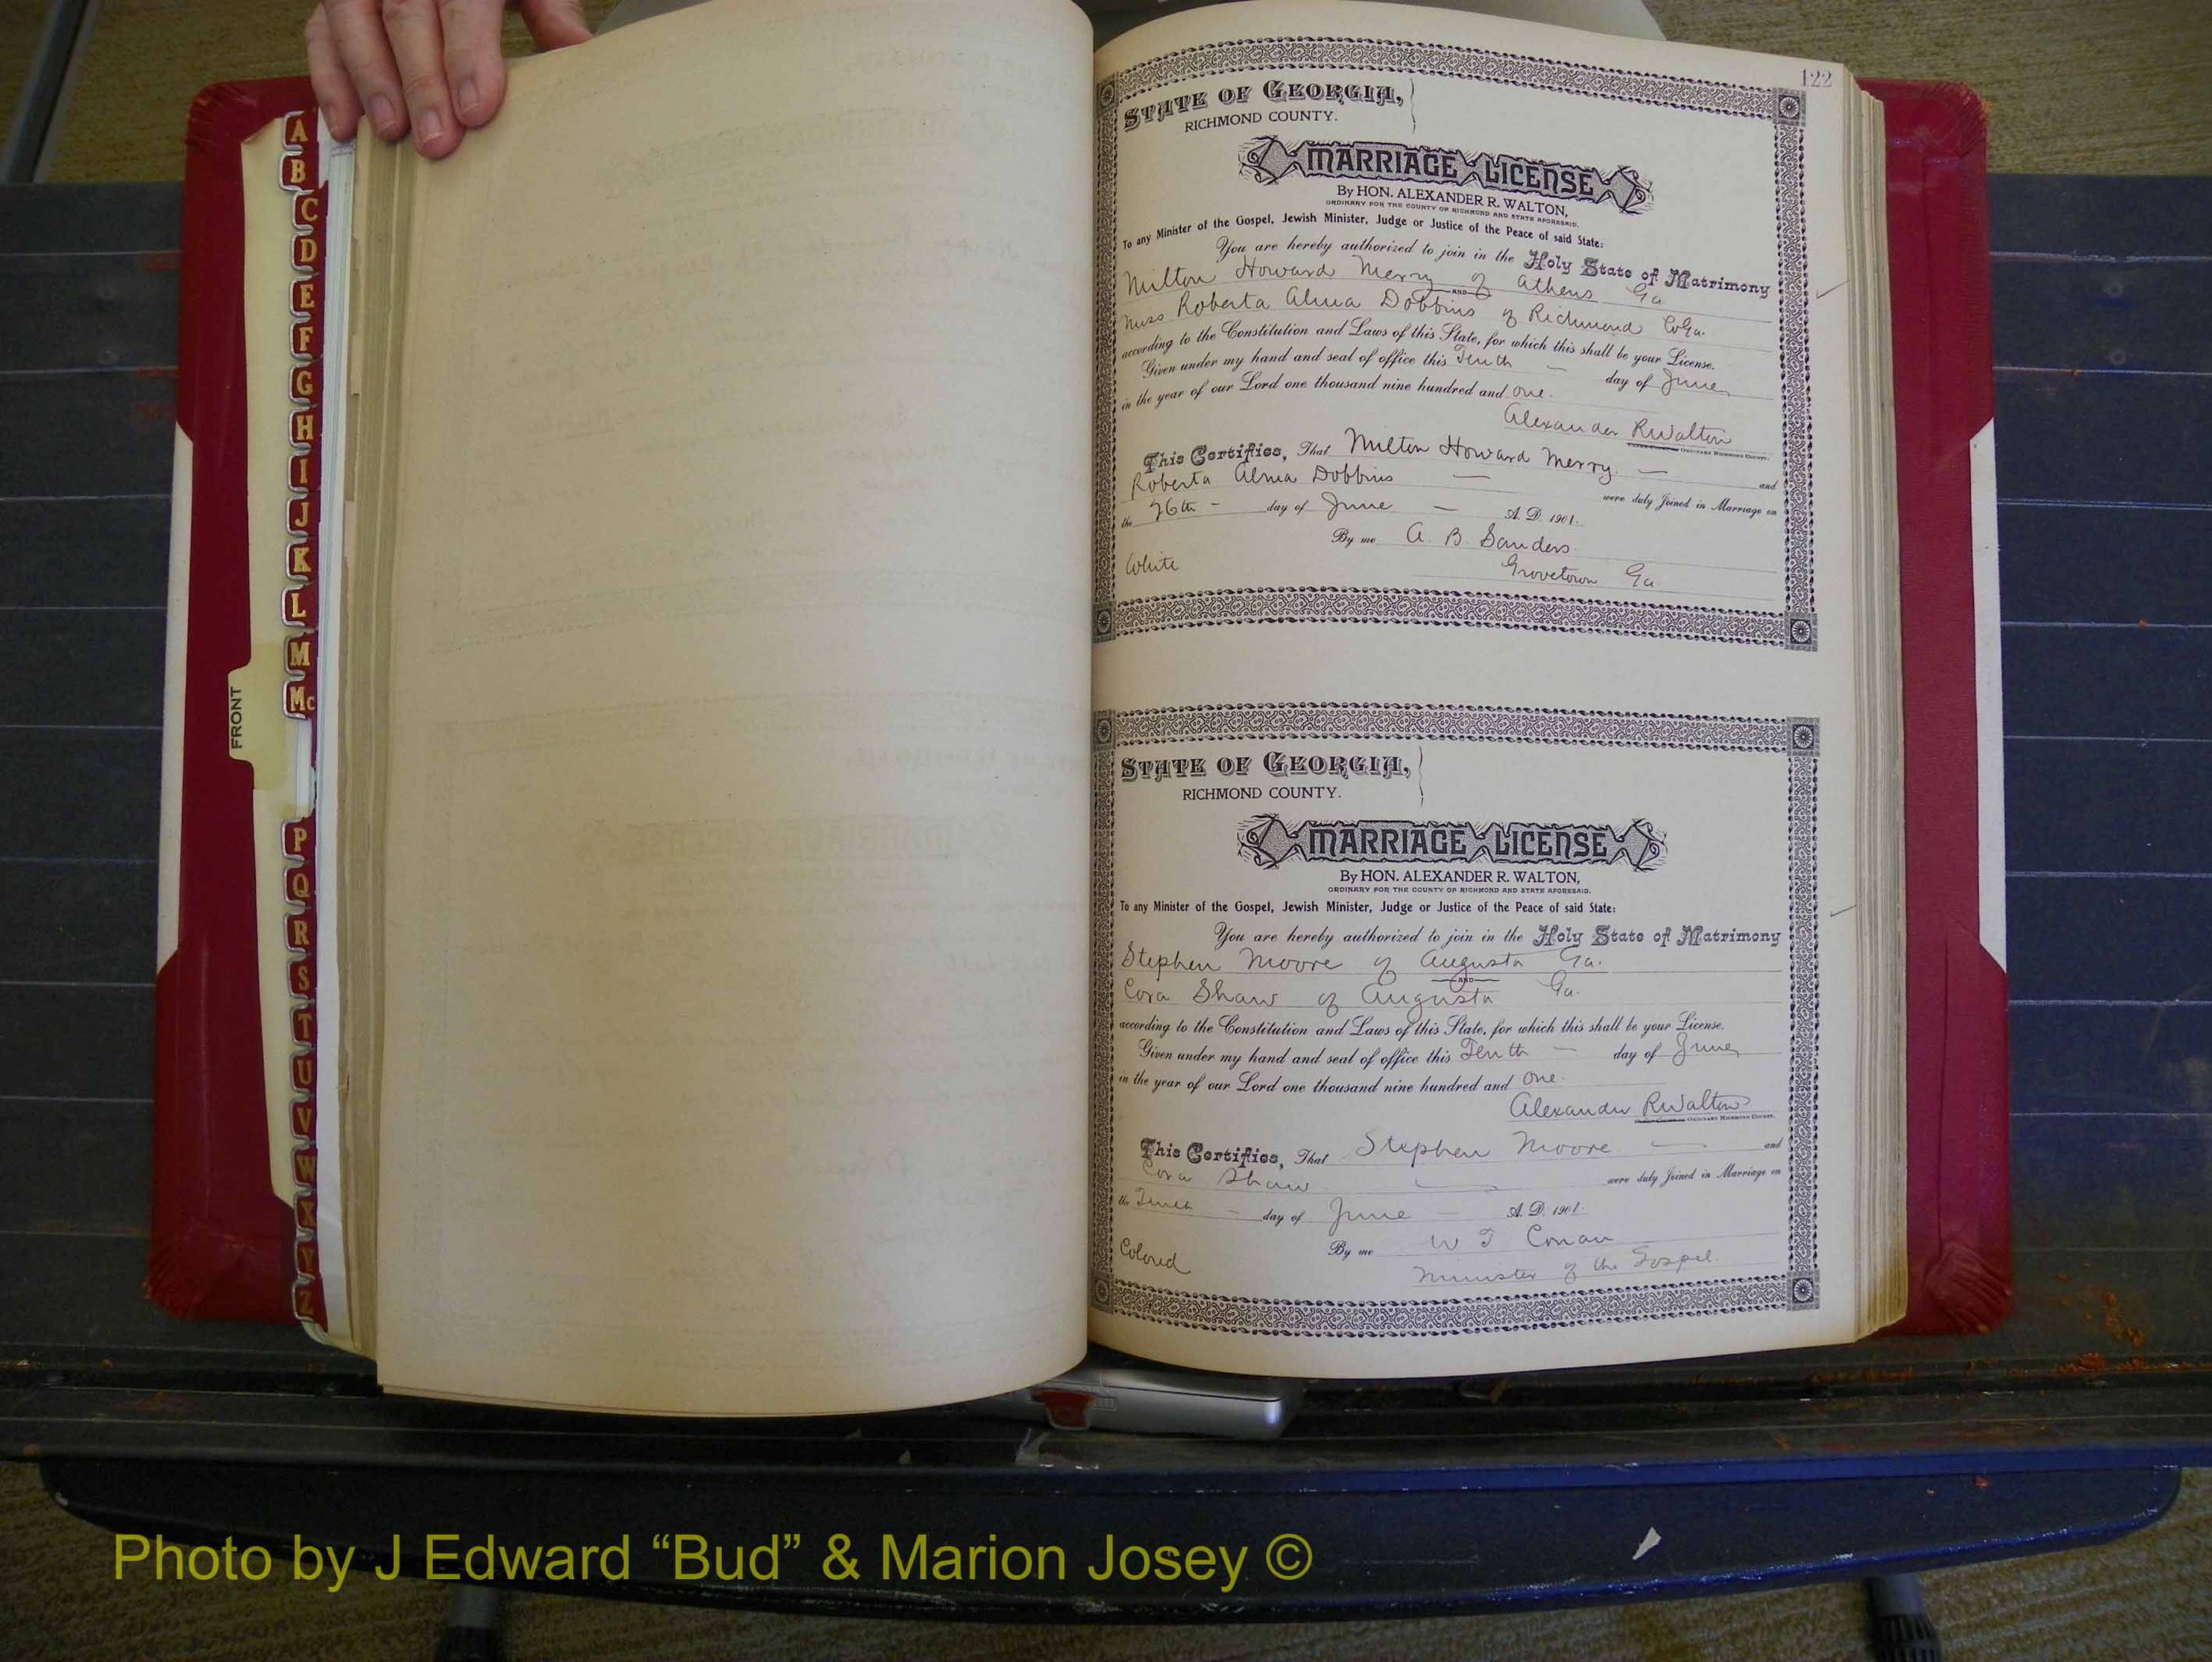 A
B
C
D
E
F
G
H
I
J
K
L
M
Mc
FRONT
P
Q
R
S
T
U
V
W
X
Y
Z
122
STATE OF GEORGIA,
RICHMOND COUNTY.
MARRIAGE LICENSE
By HON. ALEXANDER R. WALTON,
ORDINARY FOR THE COUNTY OF RICHMOND AND STATE AFORESAID.
To any Minister of the Gospel, Jewish Minister, Judge or Justice of the Peace of said State:
You are hereby authorized to join in the Holy State of Matrimony
Milton Howard Merry of Athens Ga
AND
Miss Roberta Alma Dobbins of Richmond Co Ga.
according to the Constitution and Laws of this State, for which this shall be your License.
Given under my hand and seal of office this Tenth — day of June
in the year of our Lord one thousand nine hundred and one.
Alexander R Walton
ORDINARY RICHMOND COUNTY.
This Certifies, That Milton Howard Merry — and
Roberta Alma Dobbins — were duly Joined in Marriage on
the 26th - day of June — A. D. 1901.
By me A. B. Sanders
White Grovetown Ga
STATE OF GEORGIA,
RICHMOND COUNTY.
MARRIAGE LICENSE
By HON. ALEXANDER R. WALTON,
ORDINARY FOR THE COUNTY OF RICHMOND AND STATE AFORESAID.
To any Minister of the Gospel, Jewish Minister, Judge or Justice of the Peace of said State:
You are hereby authorized to join in the Holy State of Matrimony
Stephen Moore of Augusta Ga.
AND
Cora Shaw of Augusta Ga.
according to the Constitution and Laws of this State, for which this shall be your License.
Given under my hand and seal of office this Tenth — day of June
in the year of our Lord one thousand nine hundred and one.
Alexander R Walton
ORDINARY RICHMOND COUNTY.
This Certifies, That Stephen Moore — and
Cora Shaw — were duly Joined in Marriage on
the Tenth — day of June — A. D. 1901.
By me W T Conan
Colored Minister of the Gospel.
Photo by J Edward “Bud” & Marion Josey ©